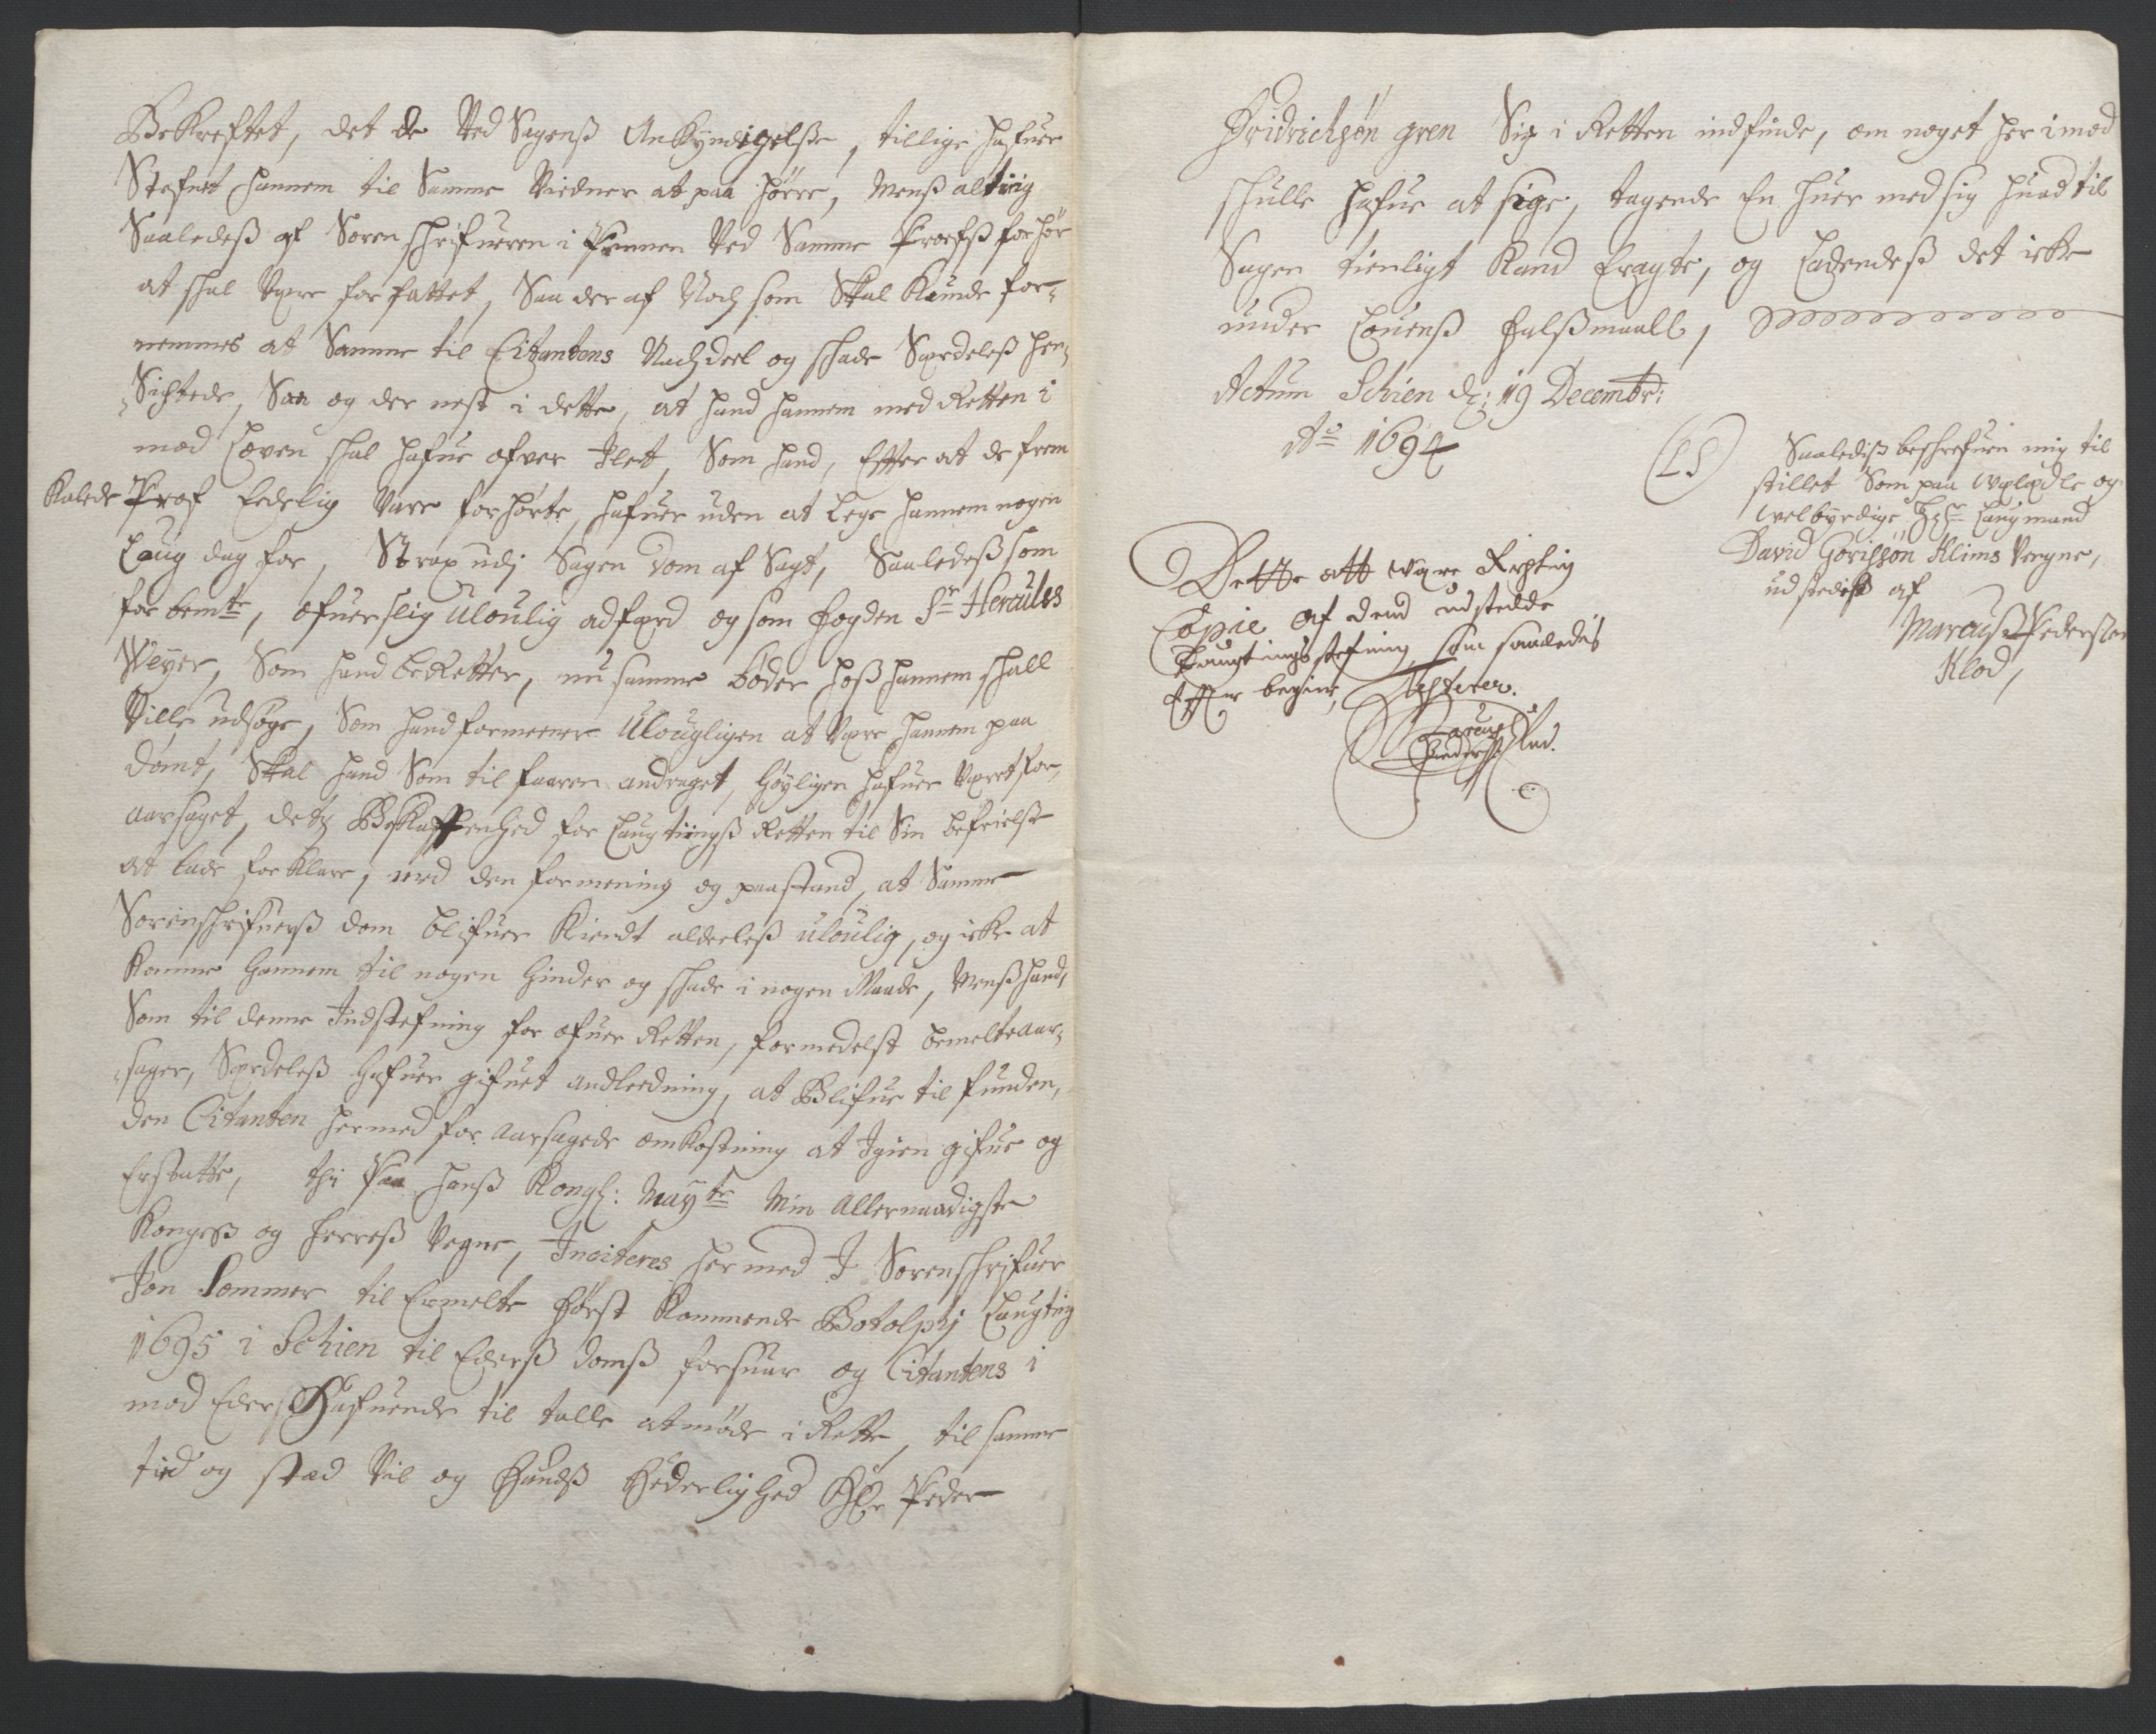 Bekreftet, det de ved Sagens Ankyndigelsse, tillige hafuer
Stefnet hannem til Samme Vidner at paa hörre, menß alting
Saaledeß af Sorenschrifueren i Pennen ved Samme Profß forhör
at skal vere forfattet, Saa der af Noch som Skal kunde for-
nemmes at Samme til Citantens Nachdeel og schade Særdeleß hen-
Sigtede, Saa og der nest i dette, at hand hannem med Retten i
mod Loven skal hafue ofver Ilet, Som hand, Effter at de frem
Kalede Prof Eedelig vare forhörte, hafuer uden at Lege hannem nogen
Laug dag for, Strax udj Sagen dom af Sagt, Saaledeß som
for bemte, ofuer slig Uloulig adferd og som fogden Sr Hercules
Weyer, Som hand beRetter, nu samme böder hoß hannem schall
ville udsöge, Som hand formeener Ulougligen at vere hannem paa
dömt, Skal hand Som til faaren andraget, höyligen hafuer veret for
aarsaget, detz Beskaffenhed for Laugtingß Retten til Sin befrielse
at lade for klare, med den formening og paastand, at Samme
Sorenschrifuerß dom blifuer kiendt aldeeleß uloulig, og icke at
komme hannem til nogen hinder og schade i nogen Maade, menß hand
Som til denne Indstefning for ofuer Retten, formedelst bemelte aar-
sager, Særdeleß hafuer gifuet andleedning, at Blifue til funden,
den Citanten hermed for aarsagede omkostning at Igien gifue og
Erstatte, thi Paa hanß Kongl: Mayts Min Allernaadigste
Kongeß og herreß Vegne, Inciteres hermed I Sorenschrifuer
Jon Sommer til Ermelte först kommende Botolphj Laugting
1695 i Schien til Ederß domß forsuar og Citantens i
mod Eders hafuende til talle at möde i Rette, til samme
tid og stæd vil og handß hæderlighed Hr Peder
Fridrichsön gren Sig i Retten indfinde, om noget her imod
schulle hafue at sige, tagende En huer med sig huad til
Sagen tienligt kand Eragte, og Ladendeß det icke
under Lovenß falßmaall,
Actum Schien d: 19 Decembr:
Ao 1694
(LS)
Saaledis beschrefuen mig til
stillet Som paa Welædle og
welbyrdige Hr Laugmand
David Görissön Klims Vegne,
udstedeß af
Marcuß Pedersen
Klod,
Dette att være Rigtig
Copie af dend udstedde
Laugtingsstefning som saaledis
Effter begier, Testerer.